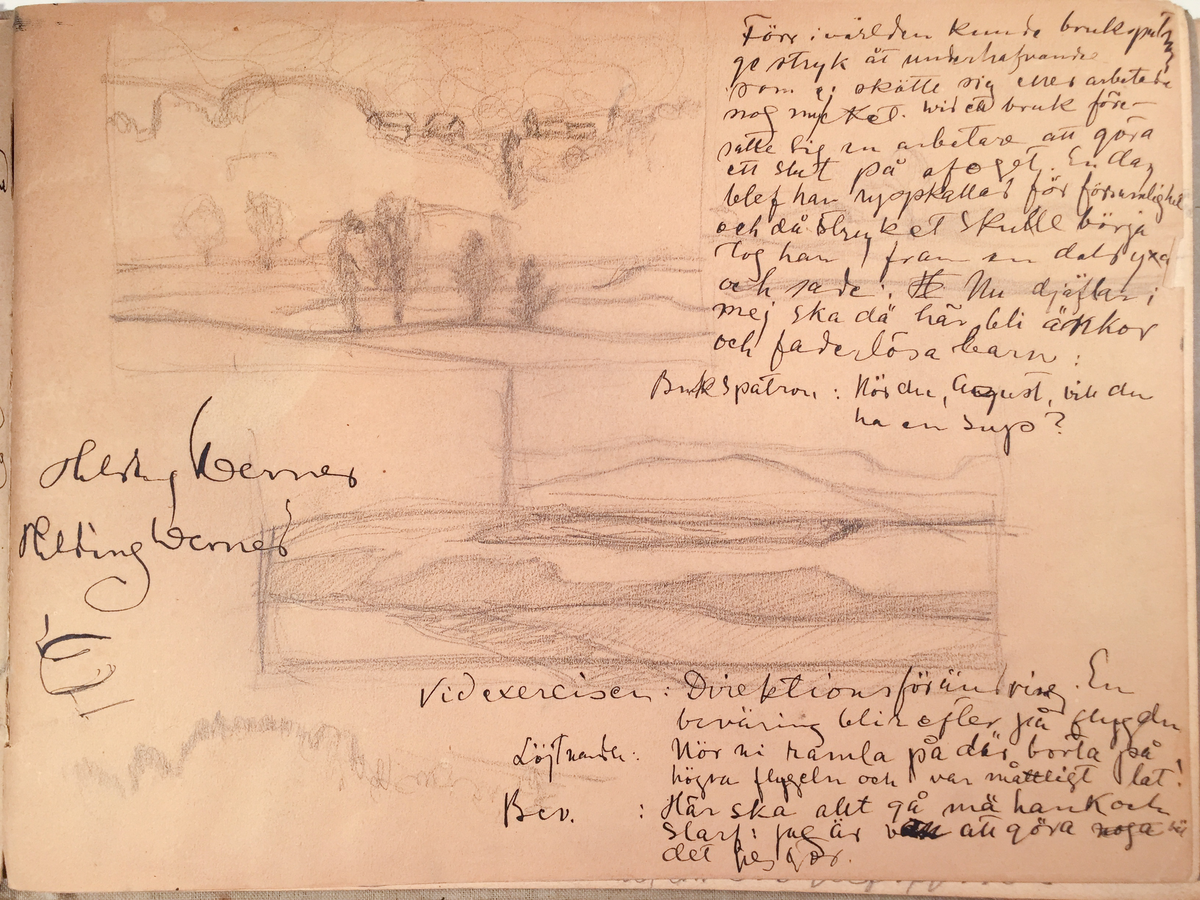 Förr i världen kunde brukspat
ge stryk åt underhafvande
som ej skötte sig eller arbetade
nog mycket. Wid ett bruk före-
satte sig en arbetare att göra
ett slut på ofoget. En dag
blef han uppkallad för försumlighet
och då stryket skulle börja
tog han fram en dals yxa
och sade: Nu djäflar i
mej ska dä här bli änkor
och faderlösa barn:
Brukspatron: Hör du, August, vill du
ha en sup?
Hilding Werner
Hilding Werner
Vid exercisen: Direktionsförändring. En
beväring blir efter på flygeln
Löjtnanten: Hör ni ramla på där borta på
högra flygeln och var måttligt lat!
Bev. : Här ska allt gå mä hank och
Slarf: jag är van att göra noga
det jag gör.